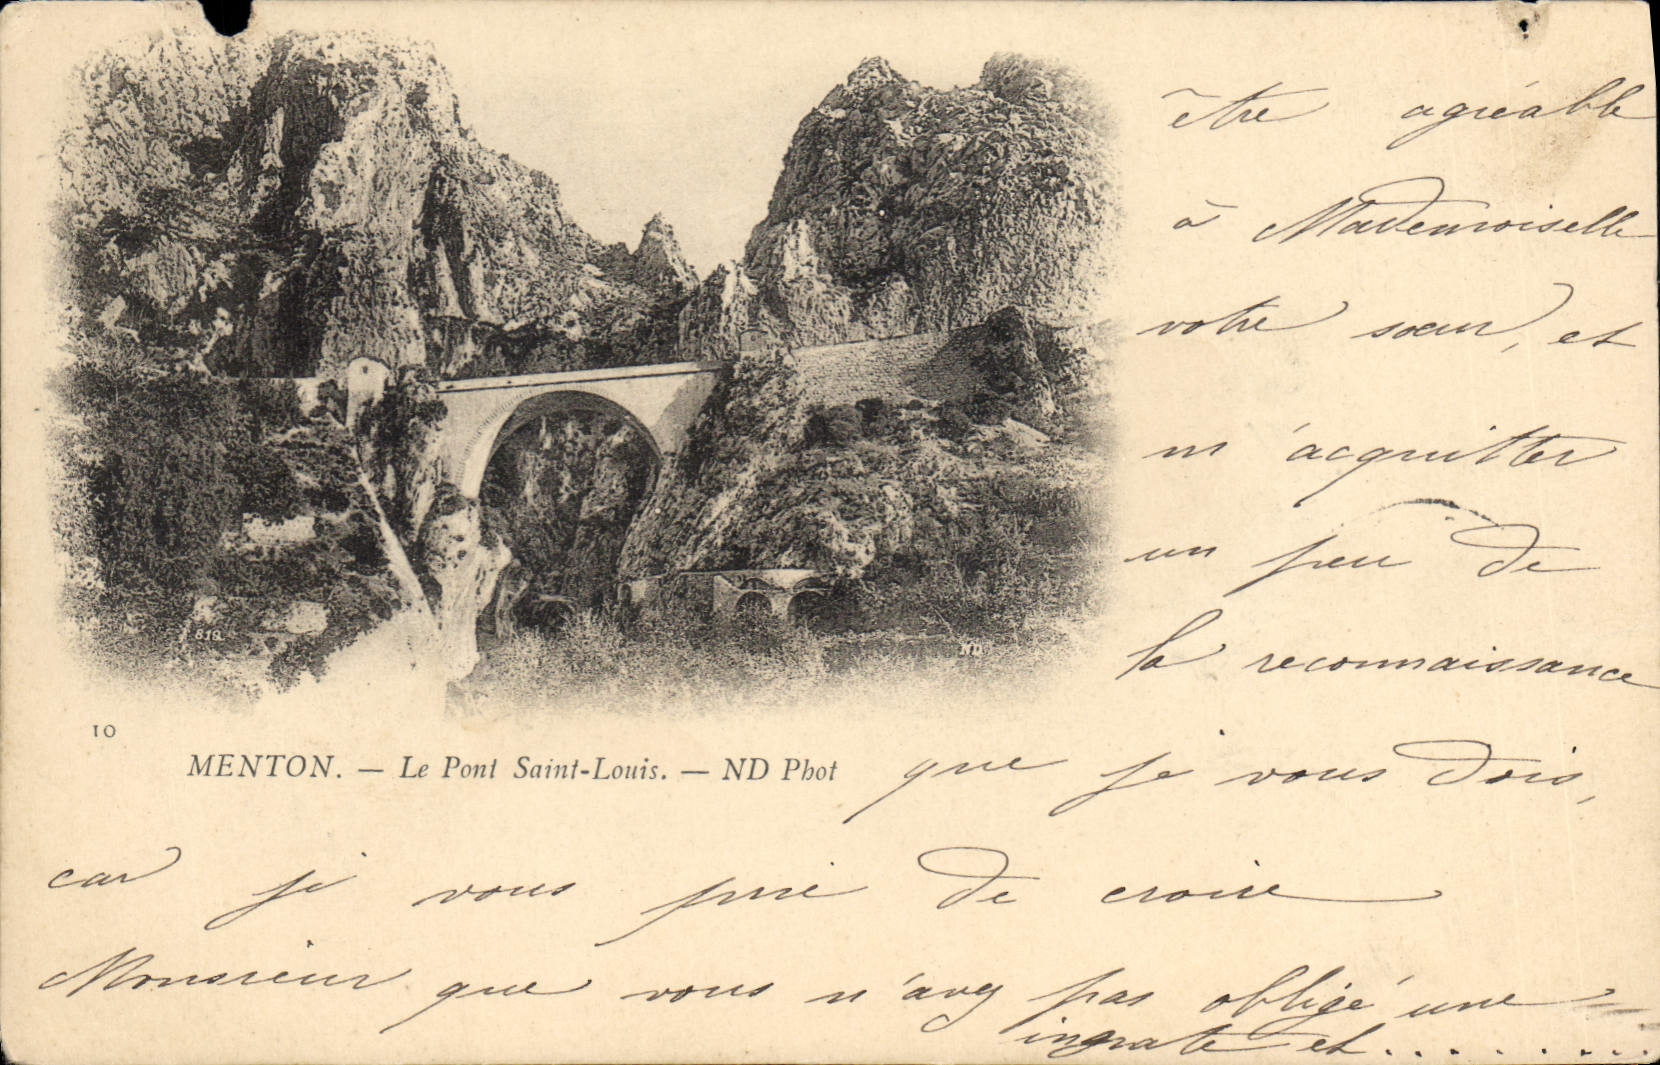 être agréable
à Mademoiselle
votre sœur, et
m'acquitter
un peu de
la reconnaissance
819
ND
10
MENTON. — Le Pont Saint-Louis. — ND Phot
que je vous dois,
car je vous prie de croire
Monsieur que vous n'avez pas obligé une
ingrate et.........